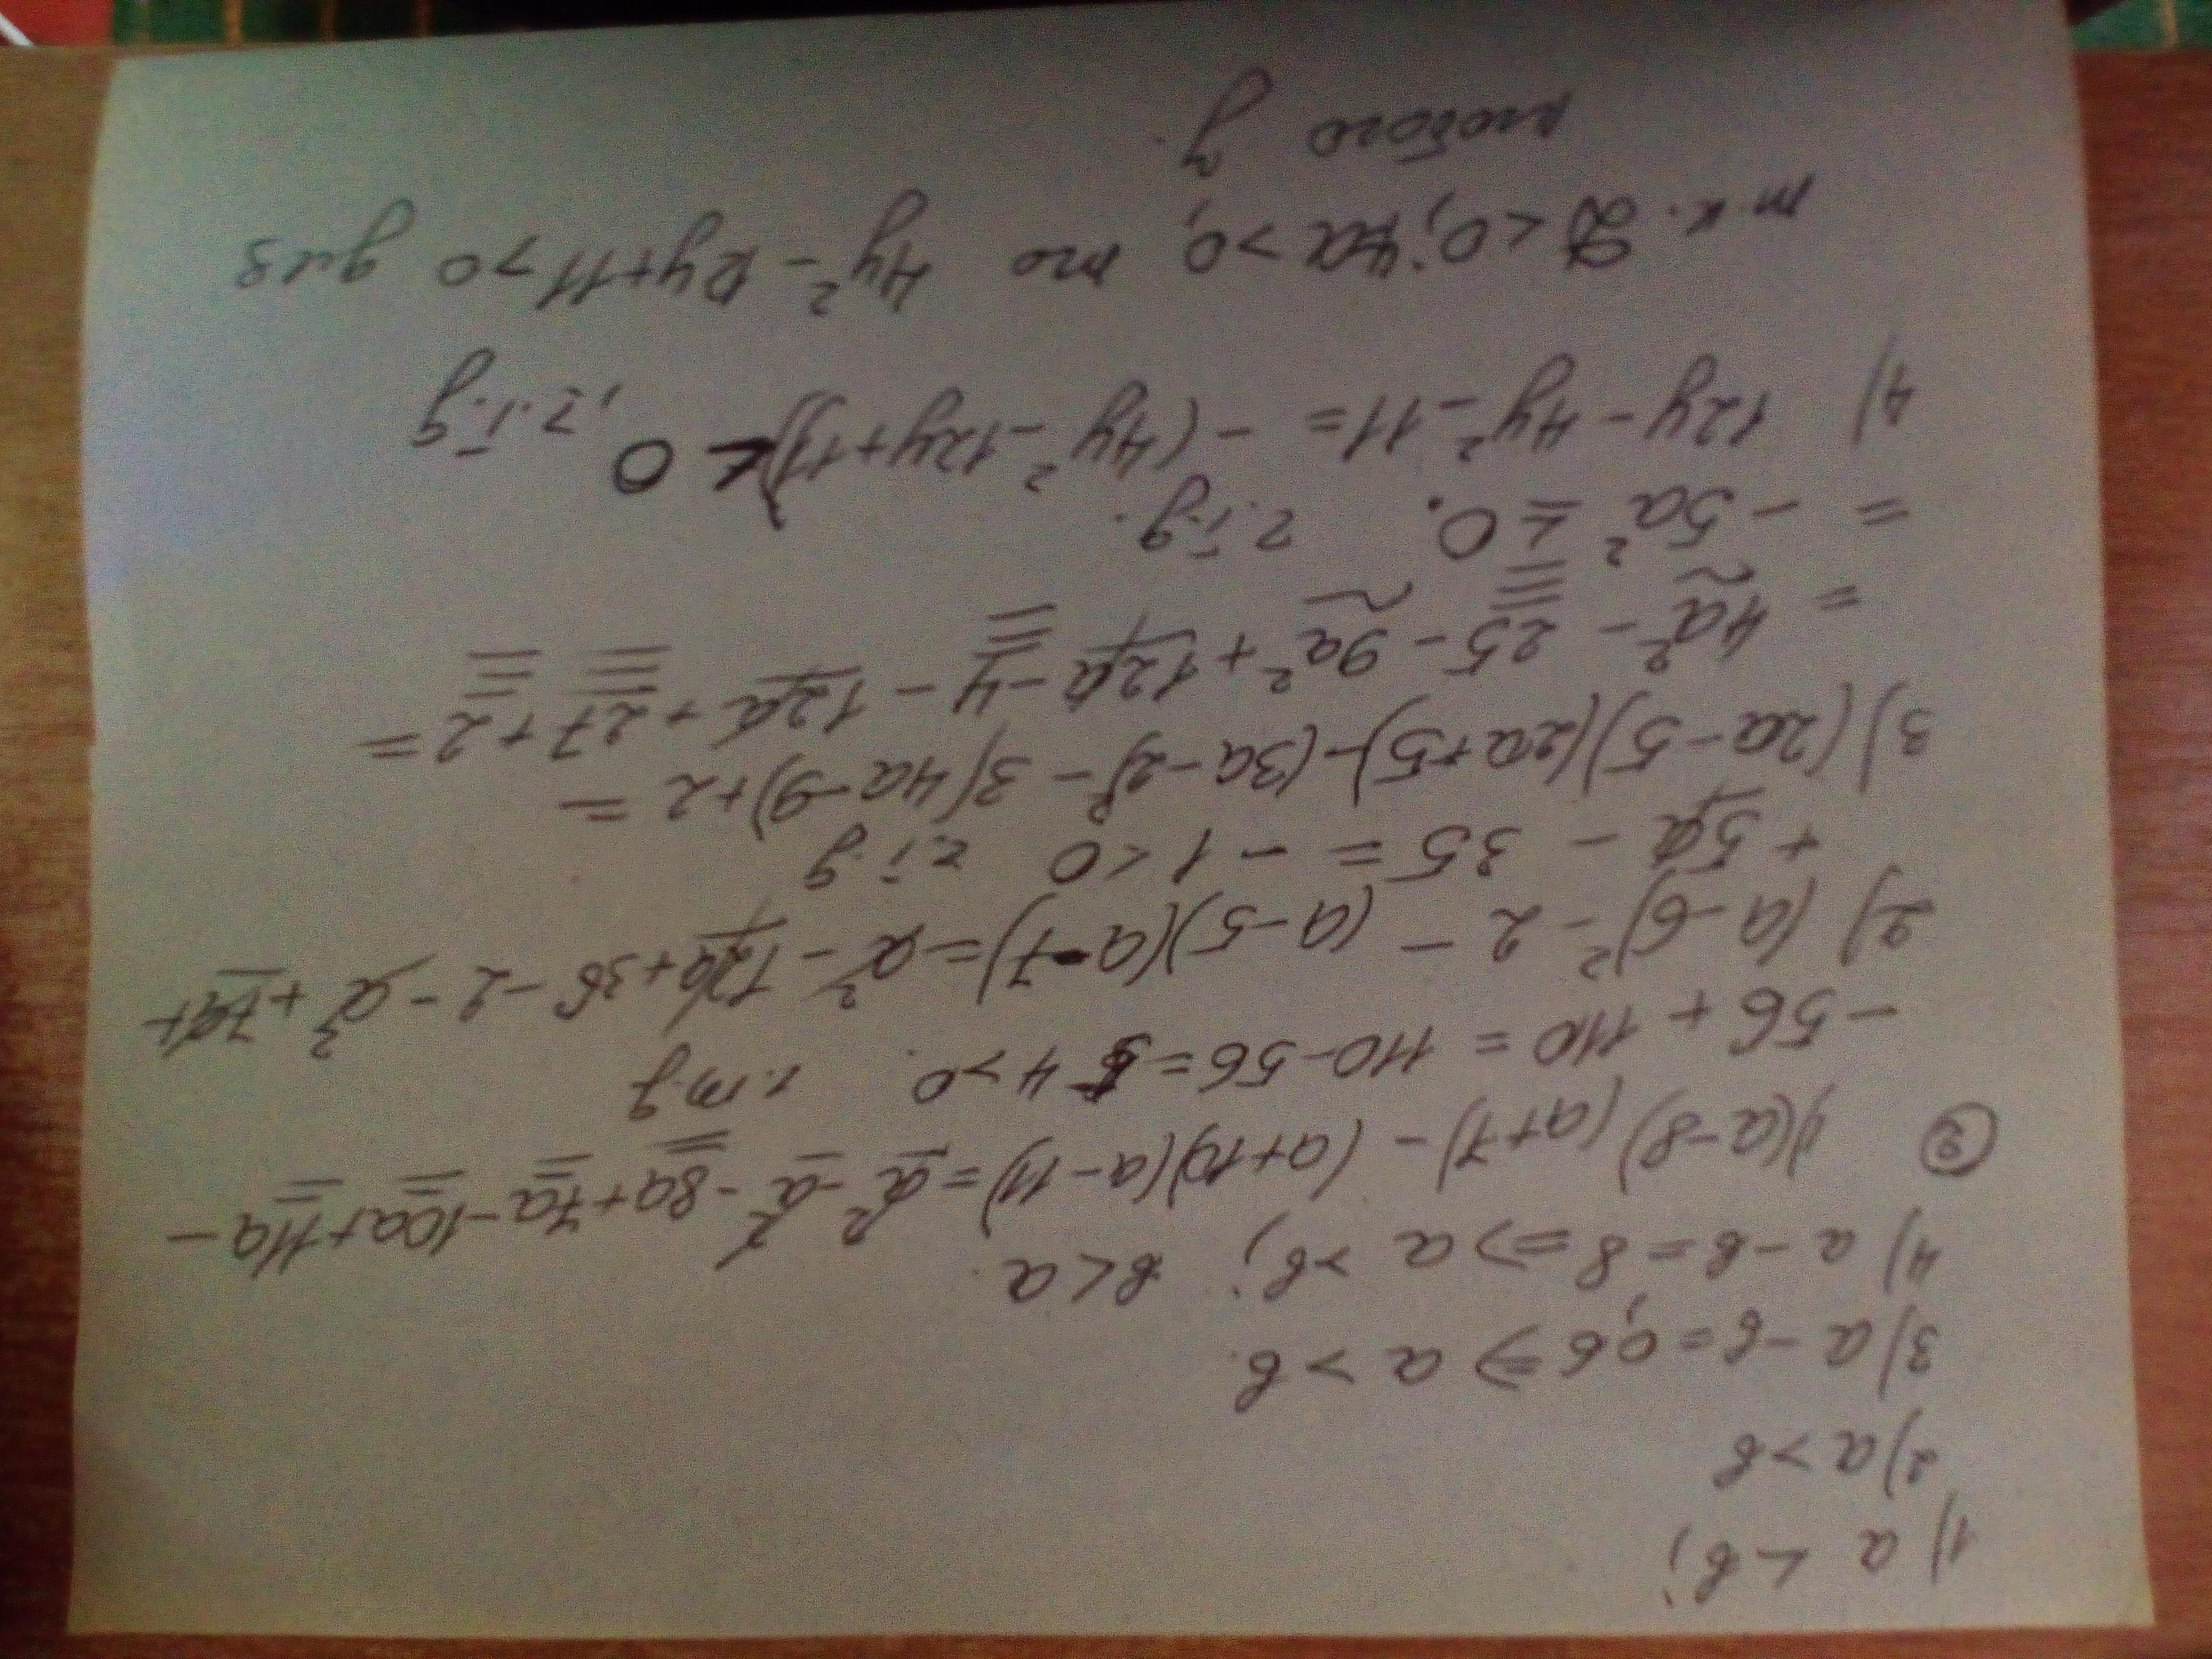 1) a < в;
2) a > в
3) a - в = 0,6 ⇒ a > в.
4) a - в = 8 ⇒ a > в; в < a.
② 1) (a-8) (a+7) - (a+10)(a-11) = a² - a² - 8a + 7a - 10a + 11a -
- 56 + 110 = 110 - 56 = 54 > 0. ч.т.д
2) (a-6)² - 2 - (a-5)(a-7) = a² - 12a + 36 - 2 - a² + 7a +
+ 5a - 35 = - 1 < 0 ч.т.д
3) (2a-5)(2a+5) - (3a-2)² - 3(4a-9) + 2 =
= 4a² - 25 - 9a² + 12a - 4 - 12a + 27 + 2 =
= - 5a² ≤ 0. ч.т.д.
4) 12y - 4y² - 11 = - (4y² - 12y + 11) < 0, ч.т.д
т.к. D < 0, a > 0, то 4y² - 12y + 11 > 0 для
любого y.